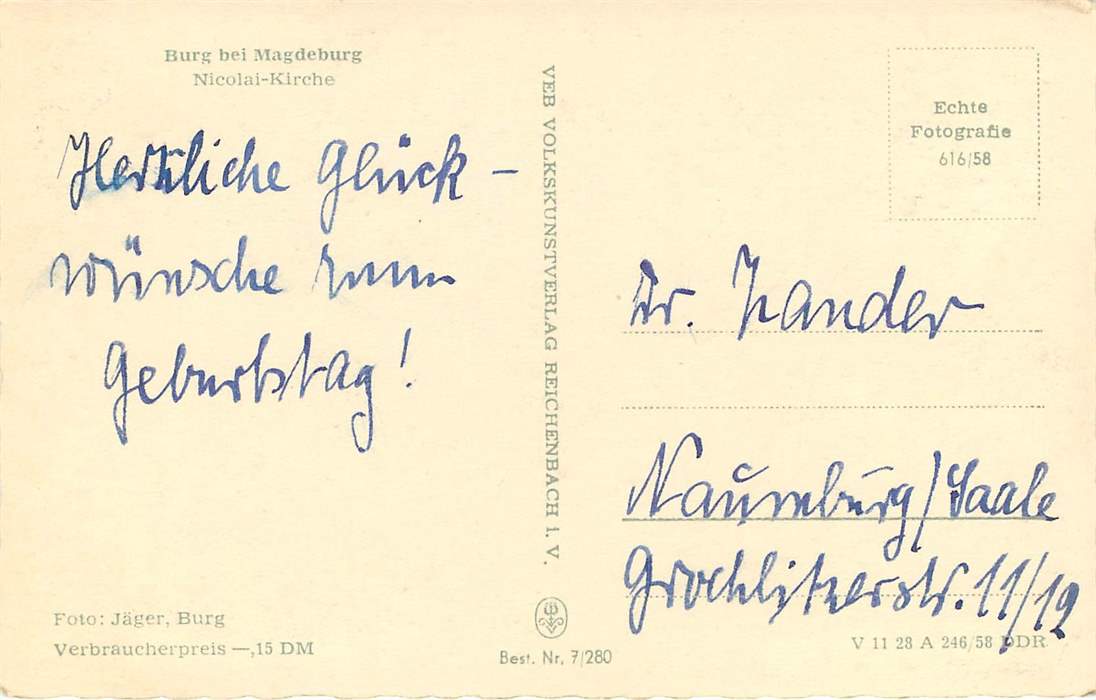 Burg bei Magdeburg
Nicolai-Kirche
Herzliche Glück-
wünsche zum
Geburtstag!
Foto: Jäger, Burg
Verbraucherpreis —,15 DM
VEB VOLKSKUNSTVERLAG REICHENBACH I. V.
Best. Nr. 7/280
Echte
Fotografie
616/58
Dr. Zander
Naumburg/Saale
Grochlitzerstr. 11/12
V 11 28 A 246/58 DDR